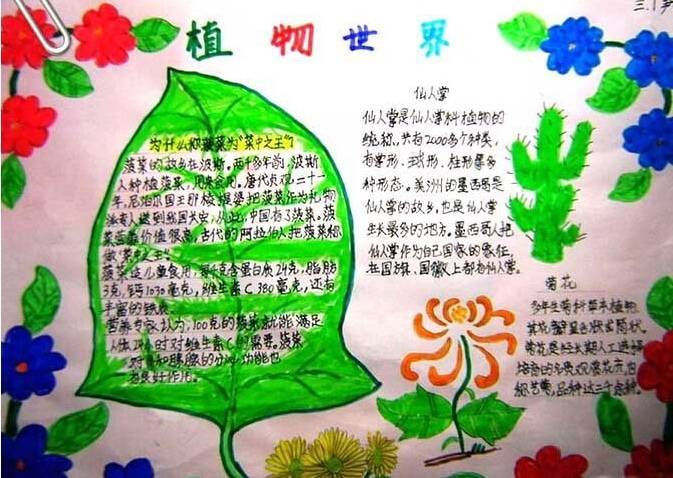 三.1
植物世界
为什么称菠菜为"菜中之王"?
菠菜的故乡在波斯。两千多年前,波斯
人种植菠菜,用来食用。唐代贞观二十一
年,尼泊尔国王那棱提婆把菠菜作为礼物
派专人送到我国长安,从此,中国有了菠菜。菠
菜营养价值很高,古代的阿拉伯人把菠菜称
做"菜中之王"。
菠菜适儿童食用,每千克含蛋白质24克,脂肪
3克,钙1030毫克,维生素C 380毫克,还有
丰富的铁质。
营养专家认为,100克的菠菜就能满足
人体24小时对维生素C的需要。菠菜
对胃和胰腺的分泌功能也
有良好作用。
仙人掌
仙人掌是仙人掌科植物的
统称,共有2000多个种类,
有掌形、球形、柱形等多
种形态。美洲的墨西哥是
仙人掌的故乡,也是仙人掌
生长最多的地方。墨西哥人把
仙人掌作为自己国家的象征,
在国旗、国徽上都有仙人掌。
菊花
多年生菊科草本植物,
其花瓣呈舌状或筒状。
菊花是经长期人工选择
培育的名贵观赏花卉,也
称艺菊,品种达三千余种。